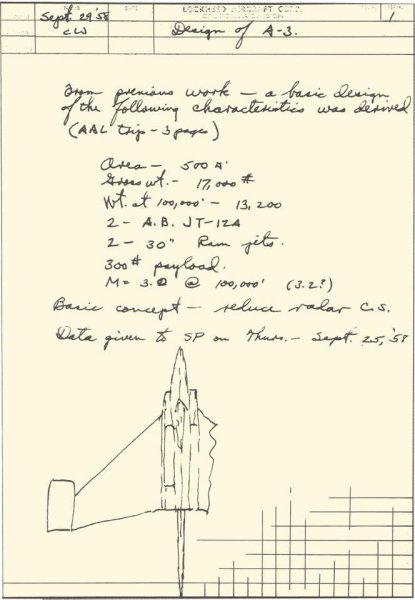 Sept. 29 '58
CW
LOCKHEED AIRCRAFT CORP.
CALIFORNIA DIVISION
Design of A-3.
1.
From previous work — a basic design
of the following characteristics was derived
(AAL trip - 3 pages)
Area — 500 ft²
Gross wt. - 17,000 #
Wt. at 100,000' - 13,200
2 - A.B. JT-12A
2 - 30" Ram jets.
300# payload.
M = 3.0 @ 100,000' (3.2?)
Basic concept — reduce radar C.S.
Data given to SP on Thurs. - Sept. 25, '58